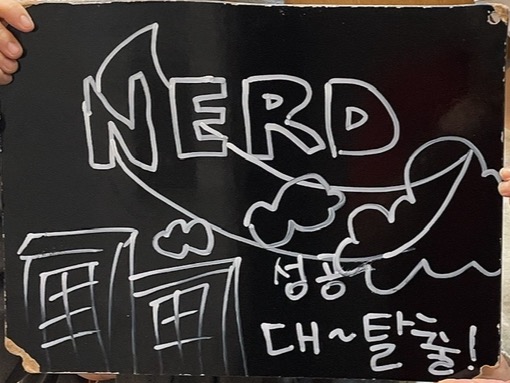 NERD
성공
대~탈출!